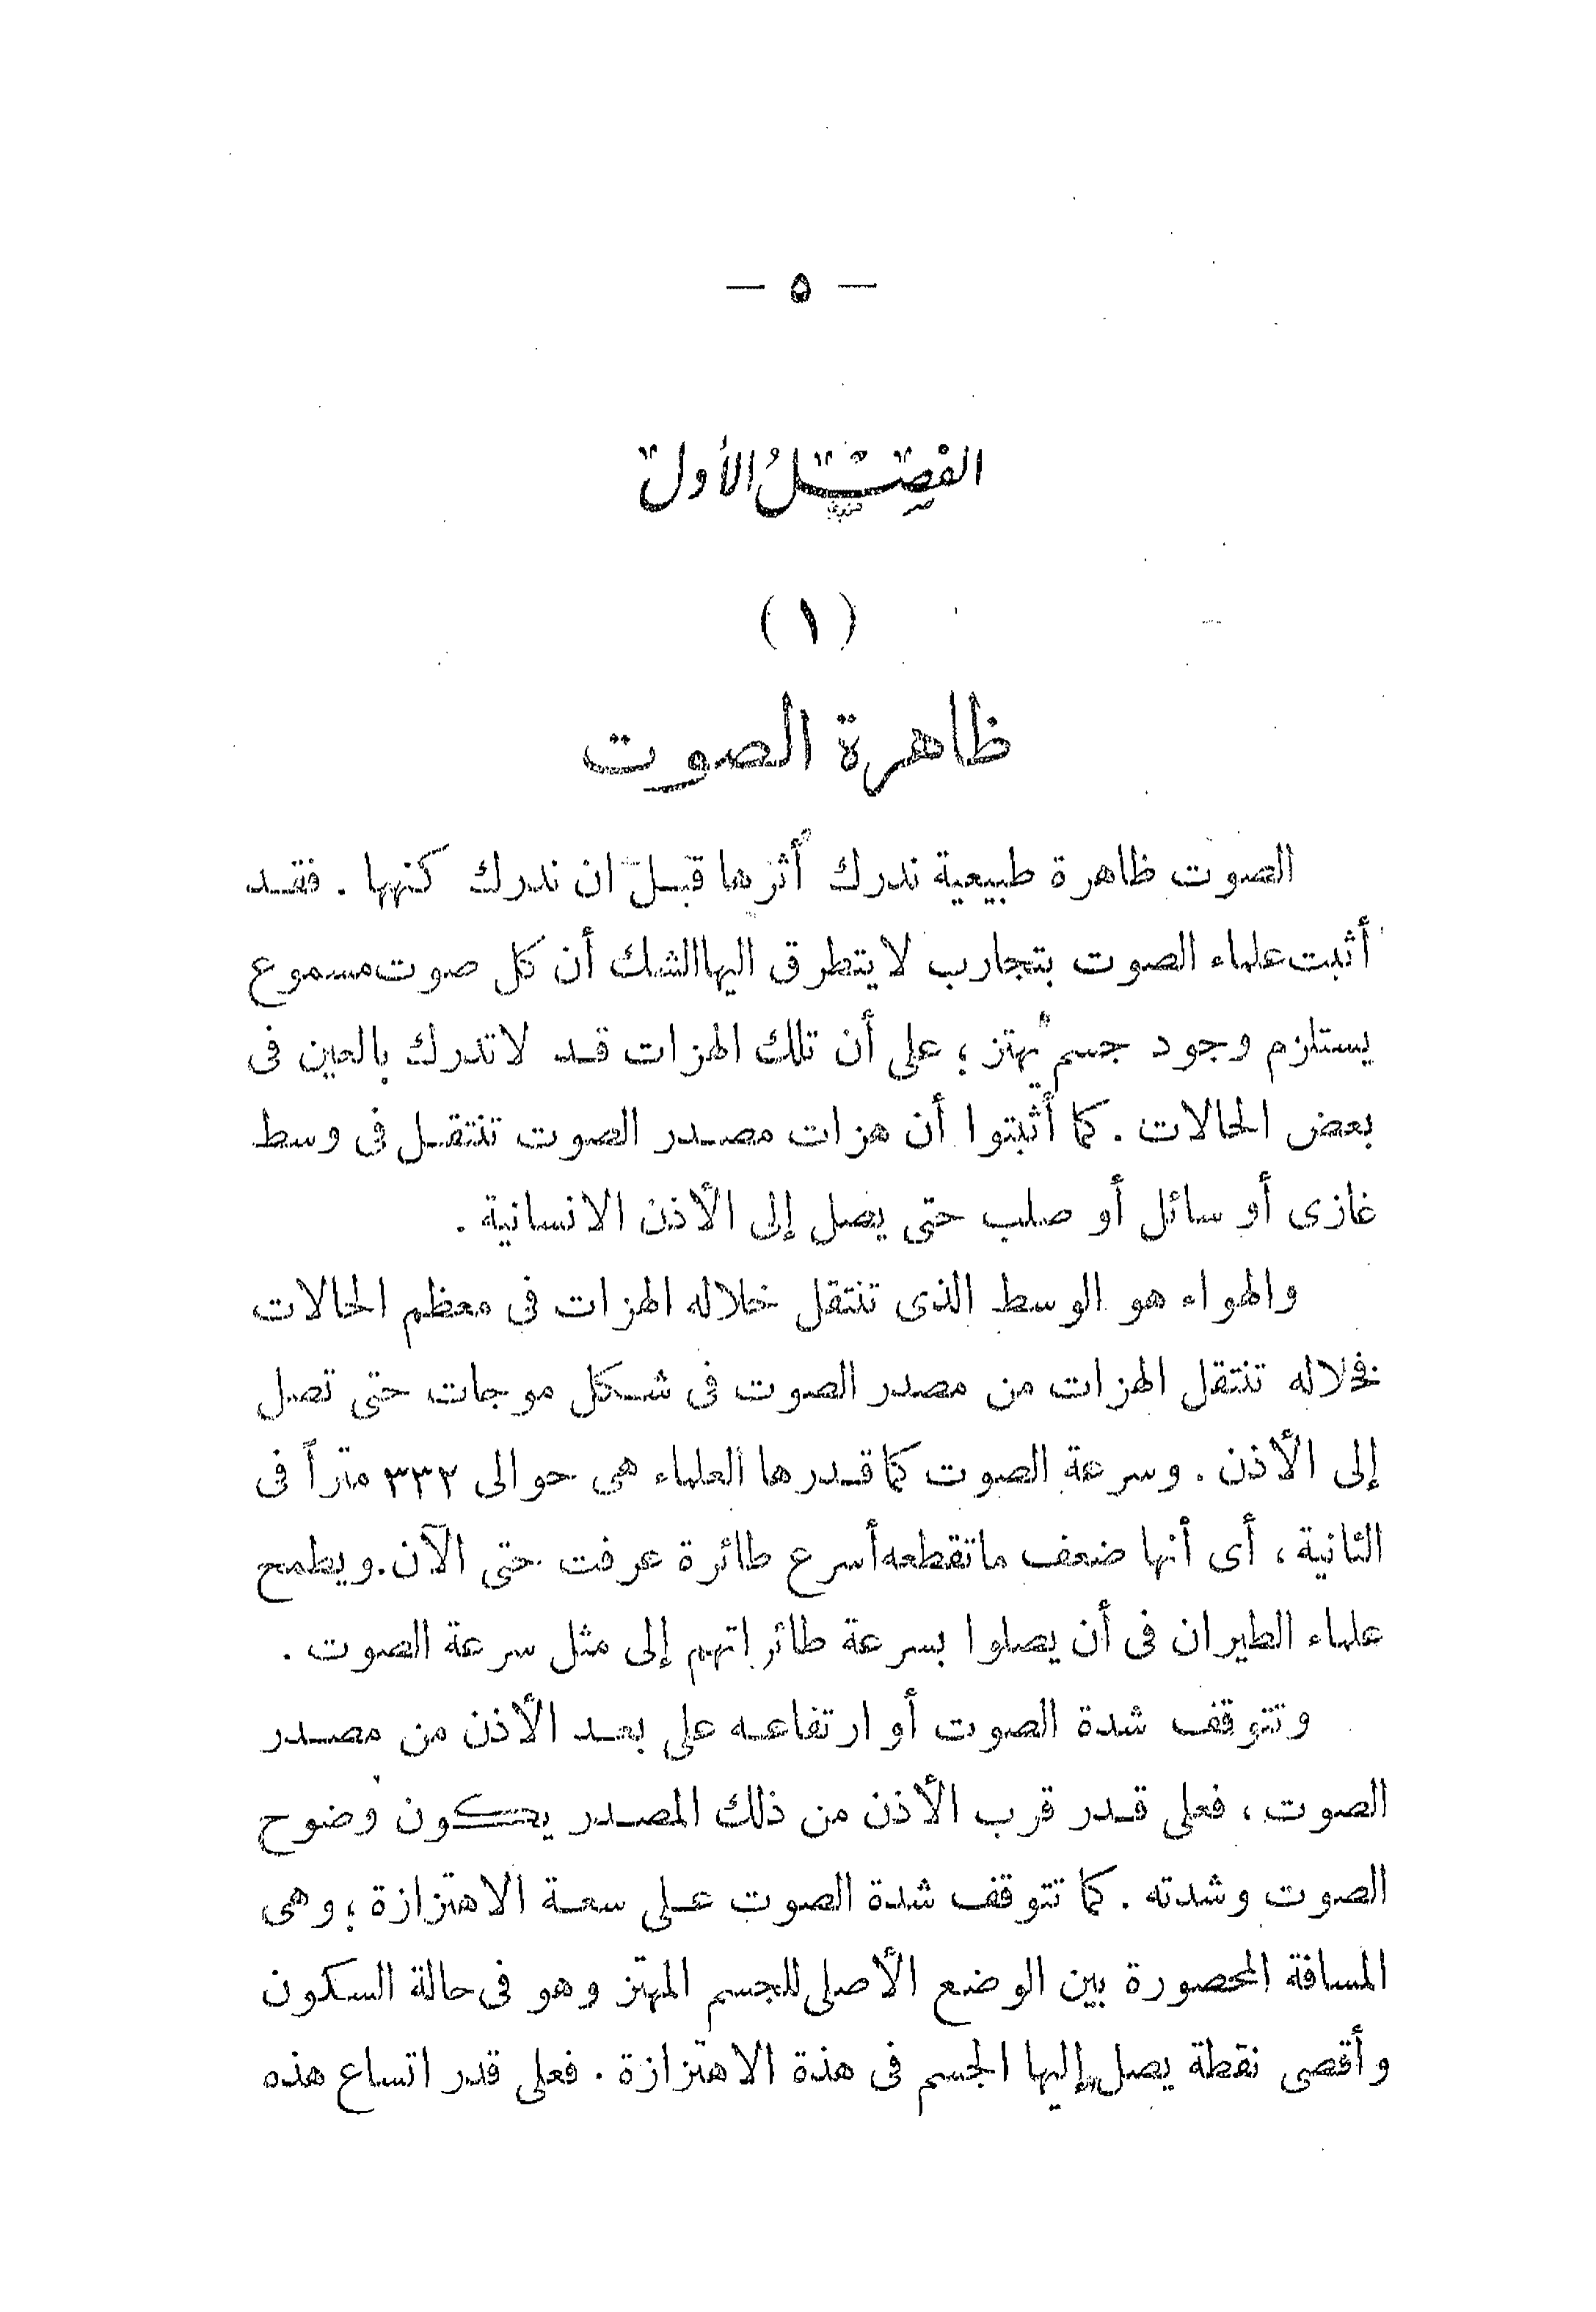 — ٥ —
الفصل الأول
(١)
ظاهرة الصوت
الصوت ظاهرة طبيعية ندرك أثرها قبل ان ندرك كنهها . فقد
أثبت علماء الصوت بتجارب لا يتطرق اليها الشك أن كل صوت مسموع
يستلزم وجود جسم يهتز ؛ على أن تلك الهزات قد لا تدرك بالعين فى
بعض الحالات . كما أثبتوا أن هزات مصدر الصوت تنتقل فى وسط
غازى أو سائل أو صلب حتى يصل إلى الأذن الانسانية .
والهواء هو الوسط الذى تنتقل خلاله الهزات فى معظم الحالات
فخلاله تنتقل الهزات من مصدر الصوت فى شكل موجات حتى تصل
إلى الأذن . وسرعة الصوت كما قدرها العلماء هى حوالى ٣٣٢ متراً فى
الثانية ، أى أنها ضعف ما تقطعه أسرع طائرة عرفت حتى الآن . ويطمح
علماء الطيران فى أن يصلوا بسرعة طائراتهم إلى مثل سرعة الصوت .
وتتوقف شدة الصوت أو ارتفاعه على بعد الأذن من مصدر
الصوت ، فعلى قدر قرب الأذن من ذلك المصدر يكون وضوح
الصوت وشدته . كما تتوقف شدة الصوت على سعة الاهتزازة ؛ وهى
المسافة المحصورة بين الوضع الأصلى للجسم المهتز وهو فى حالة السكون
وأقصى نقطة يصل إليها الجسم فى هذة الاهتزازة . فعلى قدر اتساع هذه